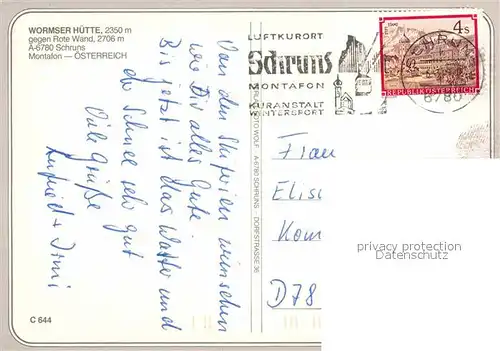 WORMSER HÜTTE, 2350 m
gegen Rote Wand, 2706 m
A-6780 Schruns
Montafon — ÖSTERREICH
Von den Skiferien wünschen
wir Dir alles Gute
Bis jetzt ist das Wetter und
der Schnee sehr gut
Viele Grüße
C 644
FOTO WOLF A-6780 SCHRUNS - DORFSTRASSE 36
LUFTKURORT
Schruns
MONTAFON
KURANSTALT
WINTERSPORT
4 S
REPUBLIK ÖSTERREICH
SCHRUNS
6780
Frau
Elis
Kom
D78
privacy protection
Datenschutz